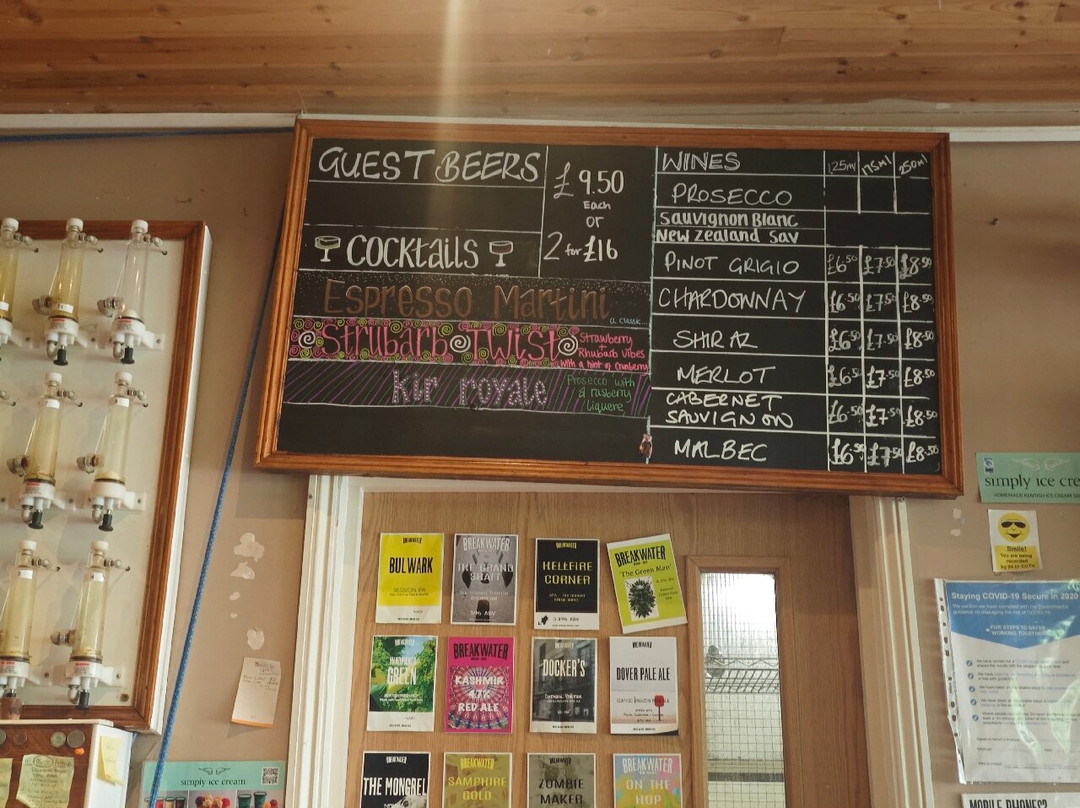 GUEST BEERS
£9.50
Each
or
2 for £16
COCKTAILS
Espresso Martini
a classic...
Strubarb Twist
Strawberry
+
Rhubarb Vibes
with a hint of cranberry
kir royale
Prosecco with
a rasberry
liquere
WINES 125ml 175ml 250ml
PROSECCO
Sauvignon Blanc
New Zealand Sav
PINOT GRIGIO £6.50 £7.50 £8.50
CHARDONNAY £6.50 £7.50 £8.50
SHIRAZ £6.50 £7.50 £8.50
MERLOT £6.50 £7.50 £8.50
CABERNET
SAUVIGNON £6.50 £7.50 £8.50
MALBEC £6.50 £7.50 £8.50
simply ice cre
HOMEMADE KENTISH ICE CREAM
Smile!
You are being
recorded
Staying COVID-19 Secure in 2020
FIVE STEPS TO SAFER
WORKING TOGETHER
MOBILE PHONES?
BREAKWATER
BULWARK
BREAKWATER
THE GRAND
SHAFT
BREAKWATER
HELLFIRE
CORNER
BREAKWATER
'The Green Man'
GREEN
BREAKWATER
KASHMIR
4.7%
RED ALE
DOCKER'S
DOVER PALE ALE
THE MONGREL
SAMPHIRE
GOLD
ZOMBIE
MAKER
BREAKWATER
ON THE
HOP
simply ice cream